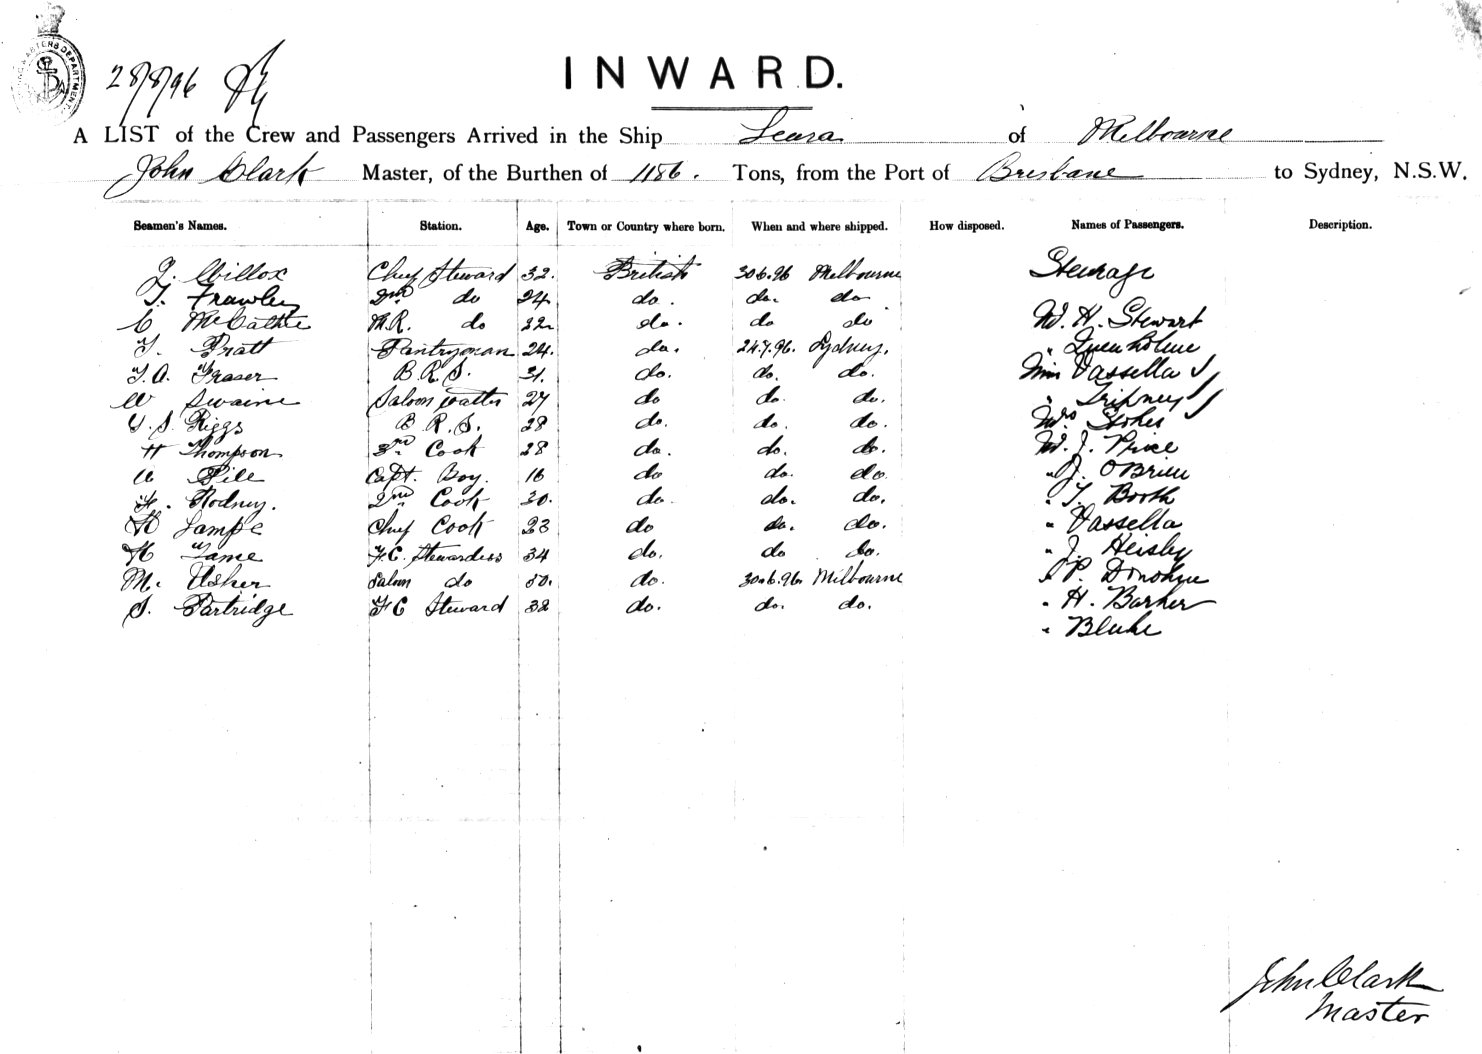 28/8/96
INWARD.
A LIST of the Crew and Passengers Arrived in the Ship Leura of Melbourne
John Clark Master, of the Burthen of 1186. Tons, from the Port of Brisbane to Sydney, N.S.W.
Seamen's Names. Station. Age. Town or Country where born. When and where shipped. How disposed. Names of Passengers. Description.
Willox Chief Steward 32. British 30.6.96 Melbourne Steerage
T. Frawley 2nd do 24 do. do. do
C McCathie M.R. do 22 do. do do W. H. Stewart
T. Pratt Pantryman 24. do. 24.7.96. Sydney. "
Fraser B.R.S. 31. do. do. do. Miss Vassella
W Swaine Saloon Waiter 27 do do. do. " Tripney
S. Riggs B.R.S. 28 do. do. do. Mrs Stokes
H Thompson 3rd Cook 28 do. do. do. J. Price
Pile Capt. Boy. 16 do do. do " J. O'Brien
Rodney. 2nd Cook 30. do. do. do. " T. Booth
H Lampe Chief Cook 23 do do. do. " Vassella
H Lame F.C. Stewardess 34 do. do do. " J. Heisley
M. Usher Saloon do 50. do. 30.6.96. Melbourne " P. Donohue
S. Partridge F C Steward 32 do. do. do. " H. Barker
"
John Clark
Master